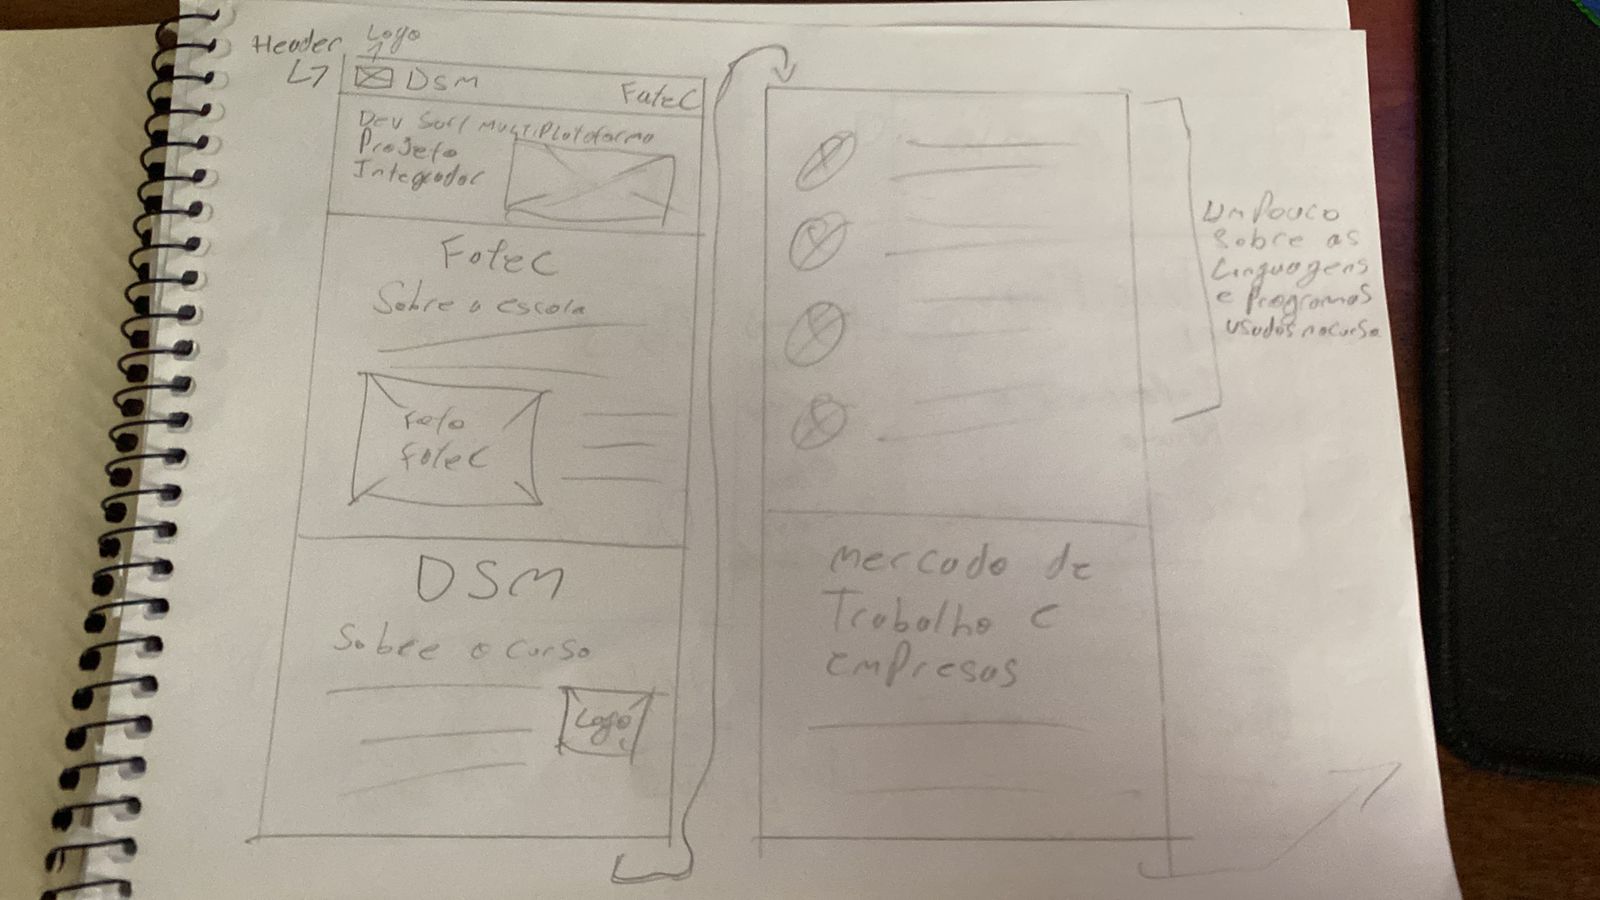 Header
Logo
DSM
FateC
Dev Soft MULTiPlataforma
Projeto
Integrador
FateC
Sobre a escola
Foto
FateC
DSM
Sobre o curso
Logo
Um Pouco
Sobre as
Linguagens
e Programas
usados no curso
Mercado de
Trabalho e
empresas